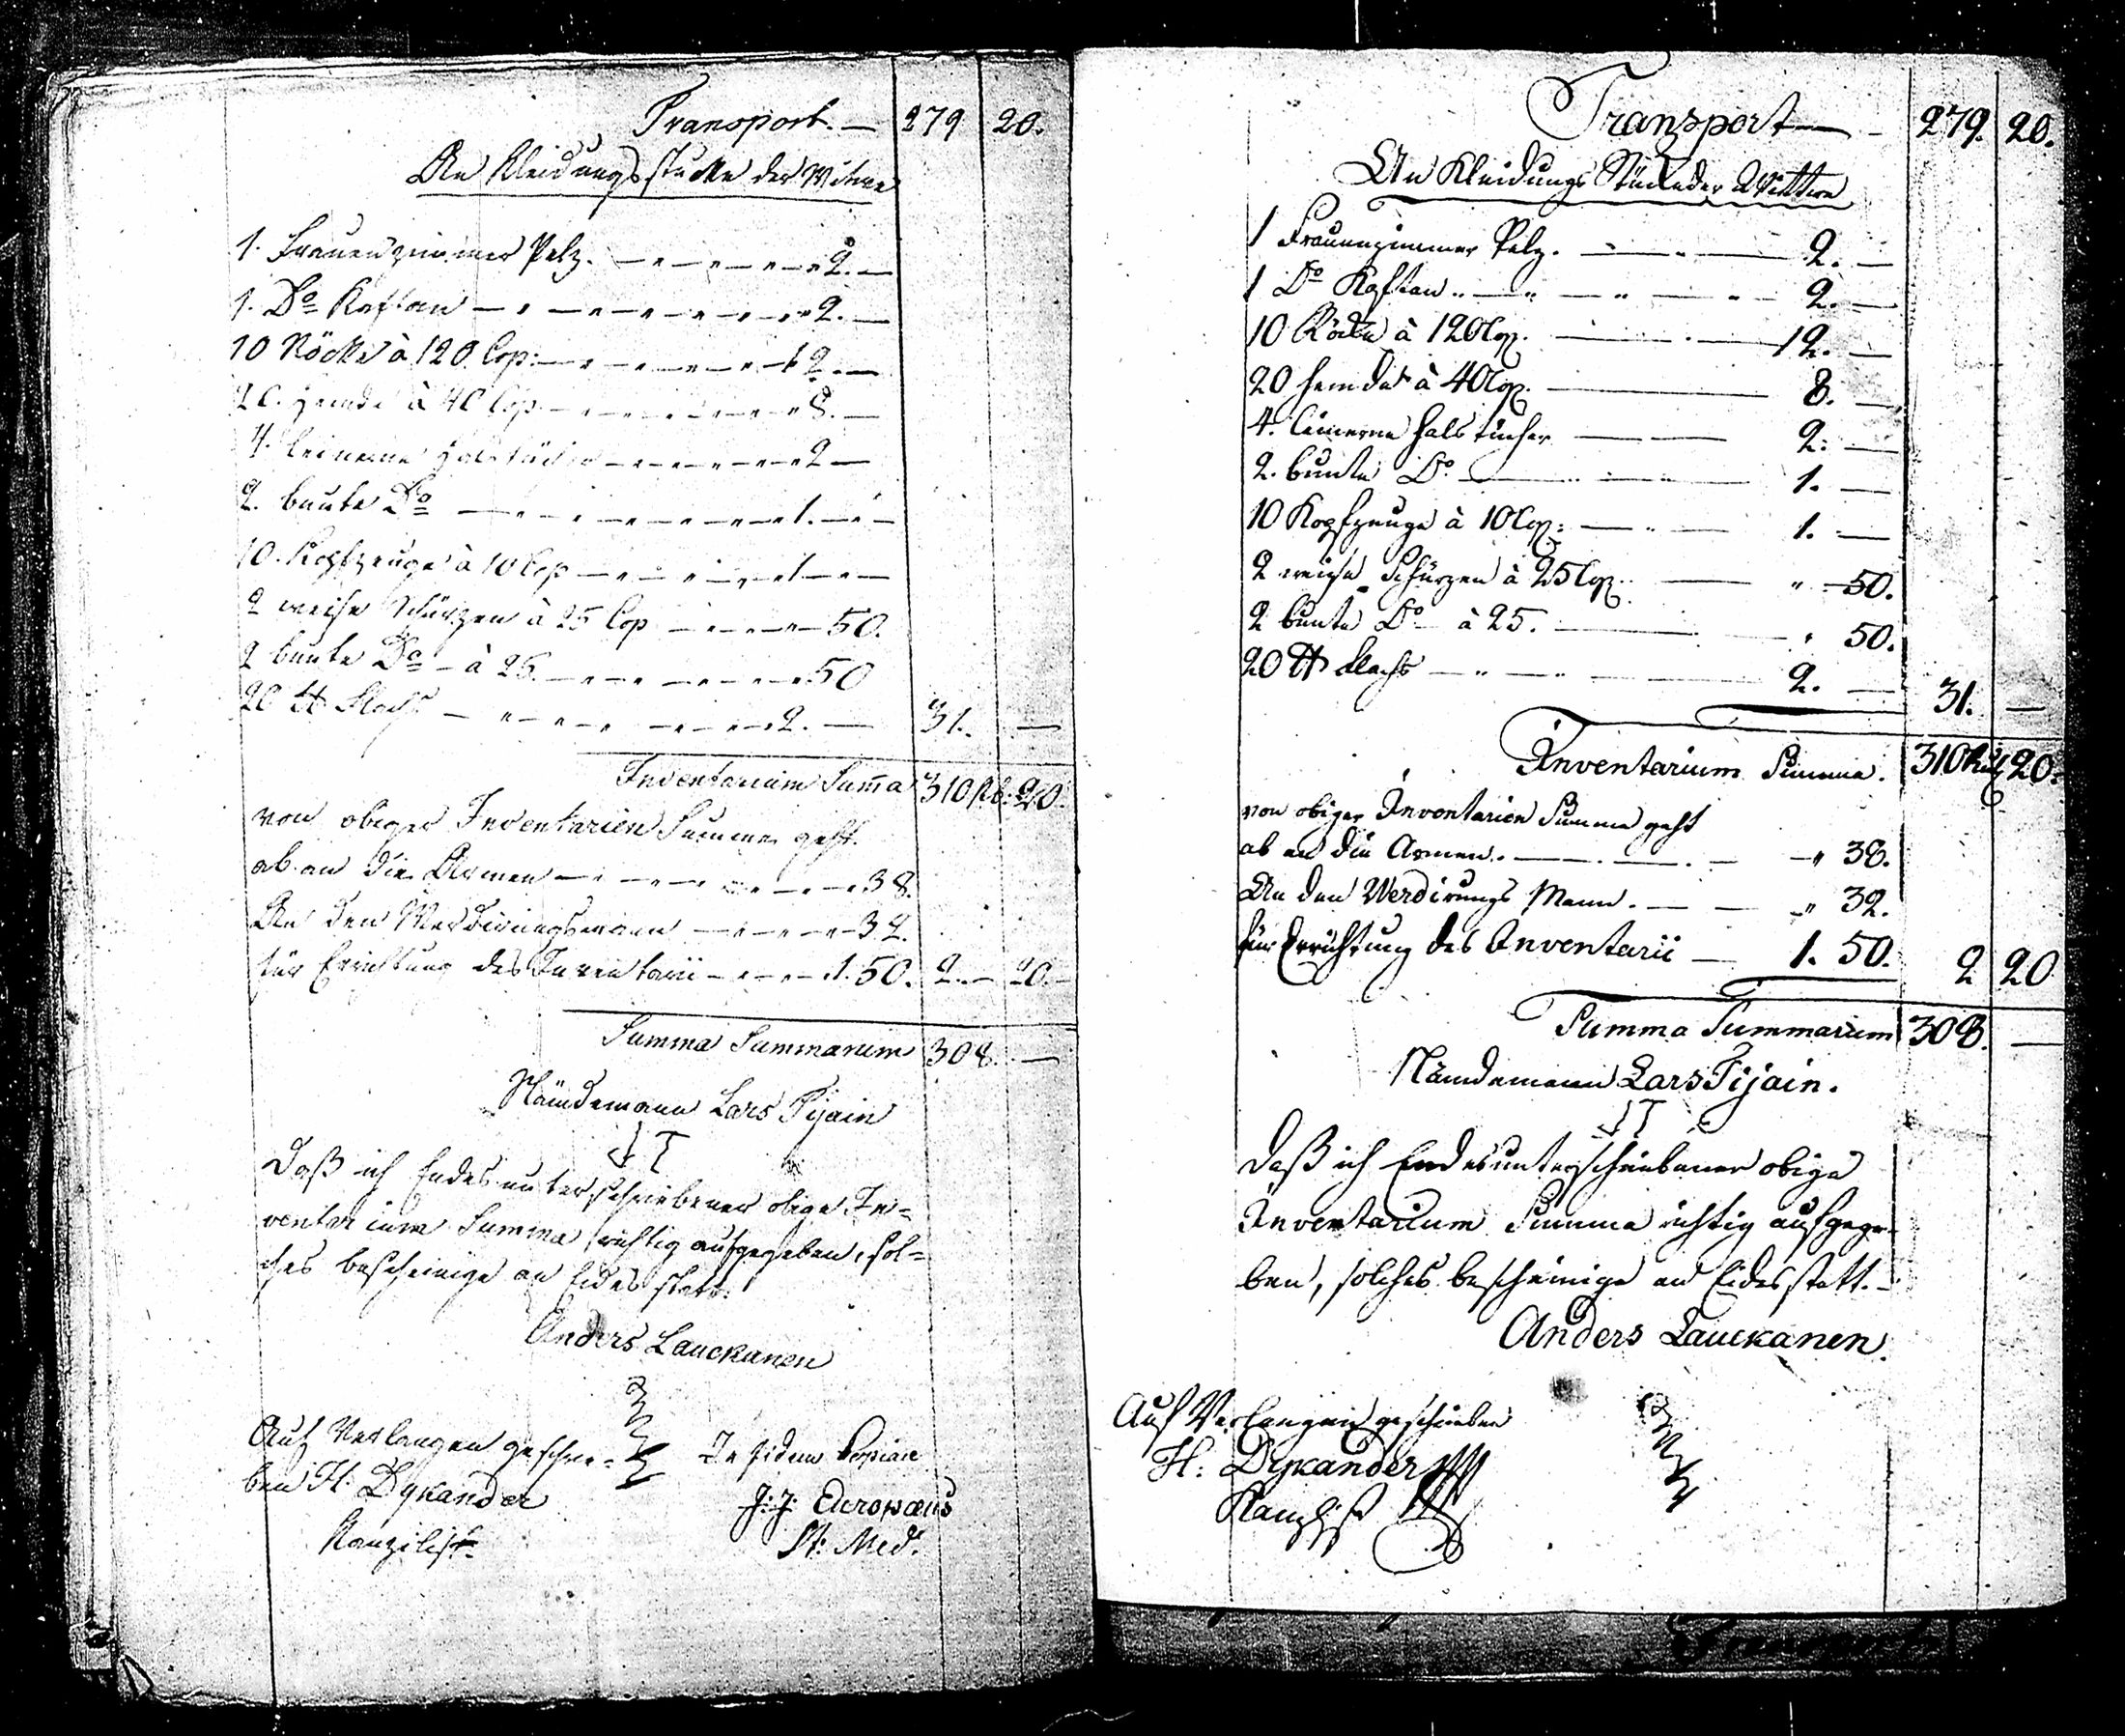 Transport. — 279 20.
An Kleidungsstücke der Witwe
1. Frauenzimmer Pelz. — 2. —
1. Do Kaftan — 2. —
10 Röcke à 120 Cop: — 12. —
20. Hemde à 40 Cop — 8. —
4. leinerne Halstücher — 2 —
2. bunte Do — 1. —
10. Kopfzeuge à 10 Cop — 1 —
2 weiße Schürzen à 25 Cop — 50.
2 bunte Do — à 25. — 50
20 ℔ Flachs — 2. — 31. —
Inventarium Summa 310 Rb: 20.
von obiger Inventarien Summe geht
ab an die Armen — 38.
An den Werdirungsmann — 32.
für Errichtung des Inventarii — 1. 50. 2. — 20. —
Summa Summarum 308. —
Nämdemann Lars Pijain
Daß ich Endesunterschriebener obige In=
ventarium Summa richtig aufgegeben, sol=
ches bescheinige an Eides statt.
Anders Lauckanen
Auf Verlangen geschrie=
ben H: Dykander
Kanzelist
In fidem Copiae
J: J: Europæus
St: Med.
Transport — 279. 20.
An Kleidungs Stücke der Wittwe
1 Frauenzimmer Pelz. — 2. —
1 Do Kaftan — 2. —
10 Röcke à 120 Cop. — 12. —
20 Hemder à 40 Cop. — 8. —
4. leinerne Halstücher — 2. —
2. bunte Do — 1. —
10 Kopfzeuge à 10 Cop: — 1. —
2 weiße Schürzen à 25 Cop. — " 50.
2 bunte Do à 25. — " 50.
20 ℔ Flachs — 2. — 31. —
Inventarium Summa. 310 Rub 20.
von obiger Inventarien Summa geht
ab an die Armen. — " 38.
An den Werdirungs Mann. — " 32.
für Errichtung des Inventarii — 1. 50. 2 20
Summa Summarum 308. —
Nämdemann Lars Pijain.
Daß ich Endesunterschriebener obige
Inventarium Summa richtig aufgege=
ben, solches bescheinige an Eides statt. —
Anders Lauckanen.
Auf Verlangen geschrieben
H: Dykander
Kanzlist